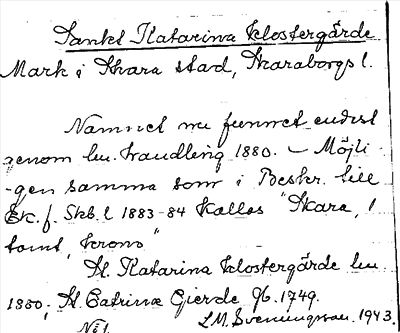 Sankt Katarina Klostergärde
Mark i Skara stad, Skaraborgs l.
Namnet nu funnet endast
genom lm. handling 1880. – Möjli-
-gen samma som i Beskr. till
Ek. f. Skb. l 1883-84 kallas "Skara, 1
tomt, krono"
St. Katarina Klostergärde lm
1880; St Catrinæ Gierde Jb. 1749.
N:o 1. S.M. Svenningsson. 1943.